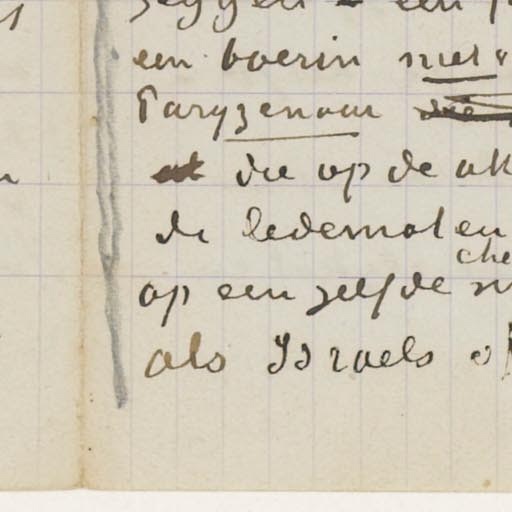 zeggen – een
een boerin met
Paryzenaar
die op de
de ledematen en
che
op een zelfde
als Israels of